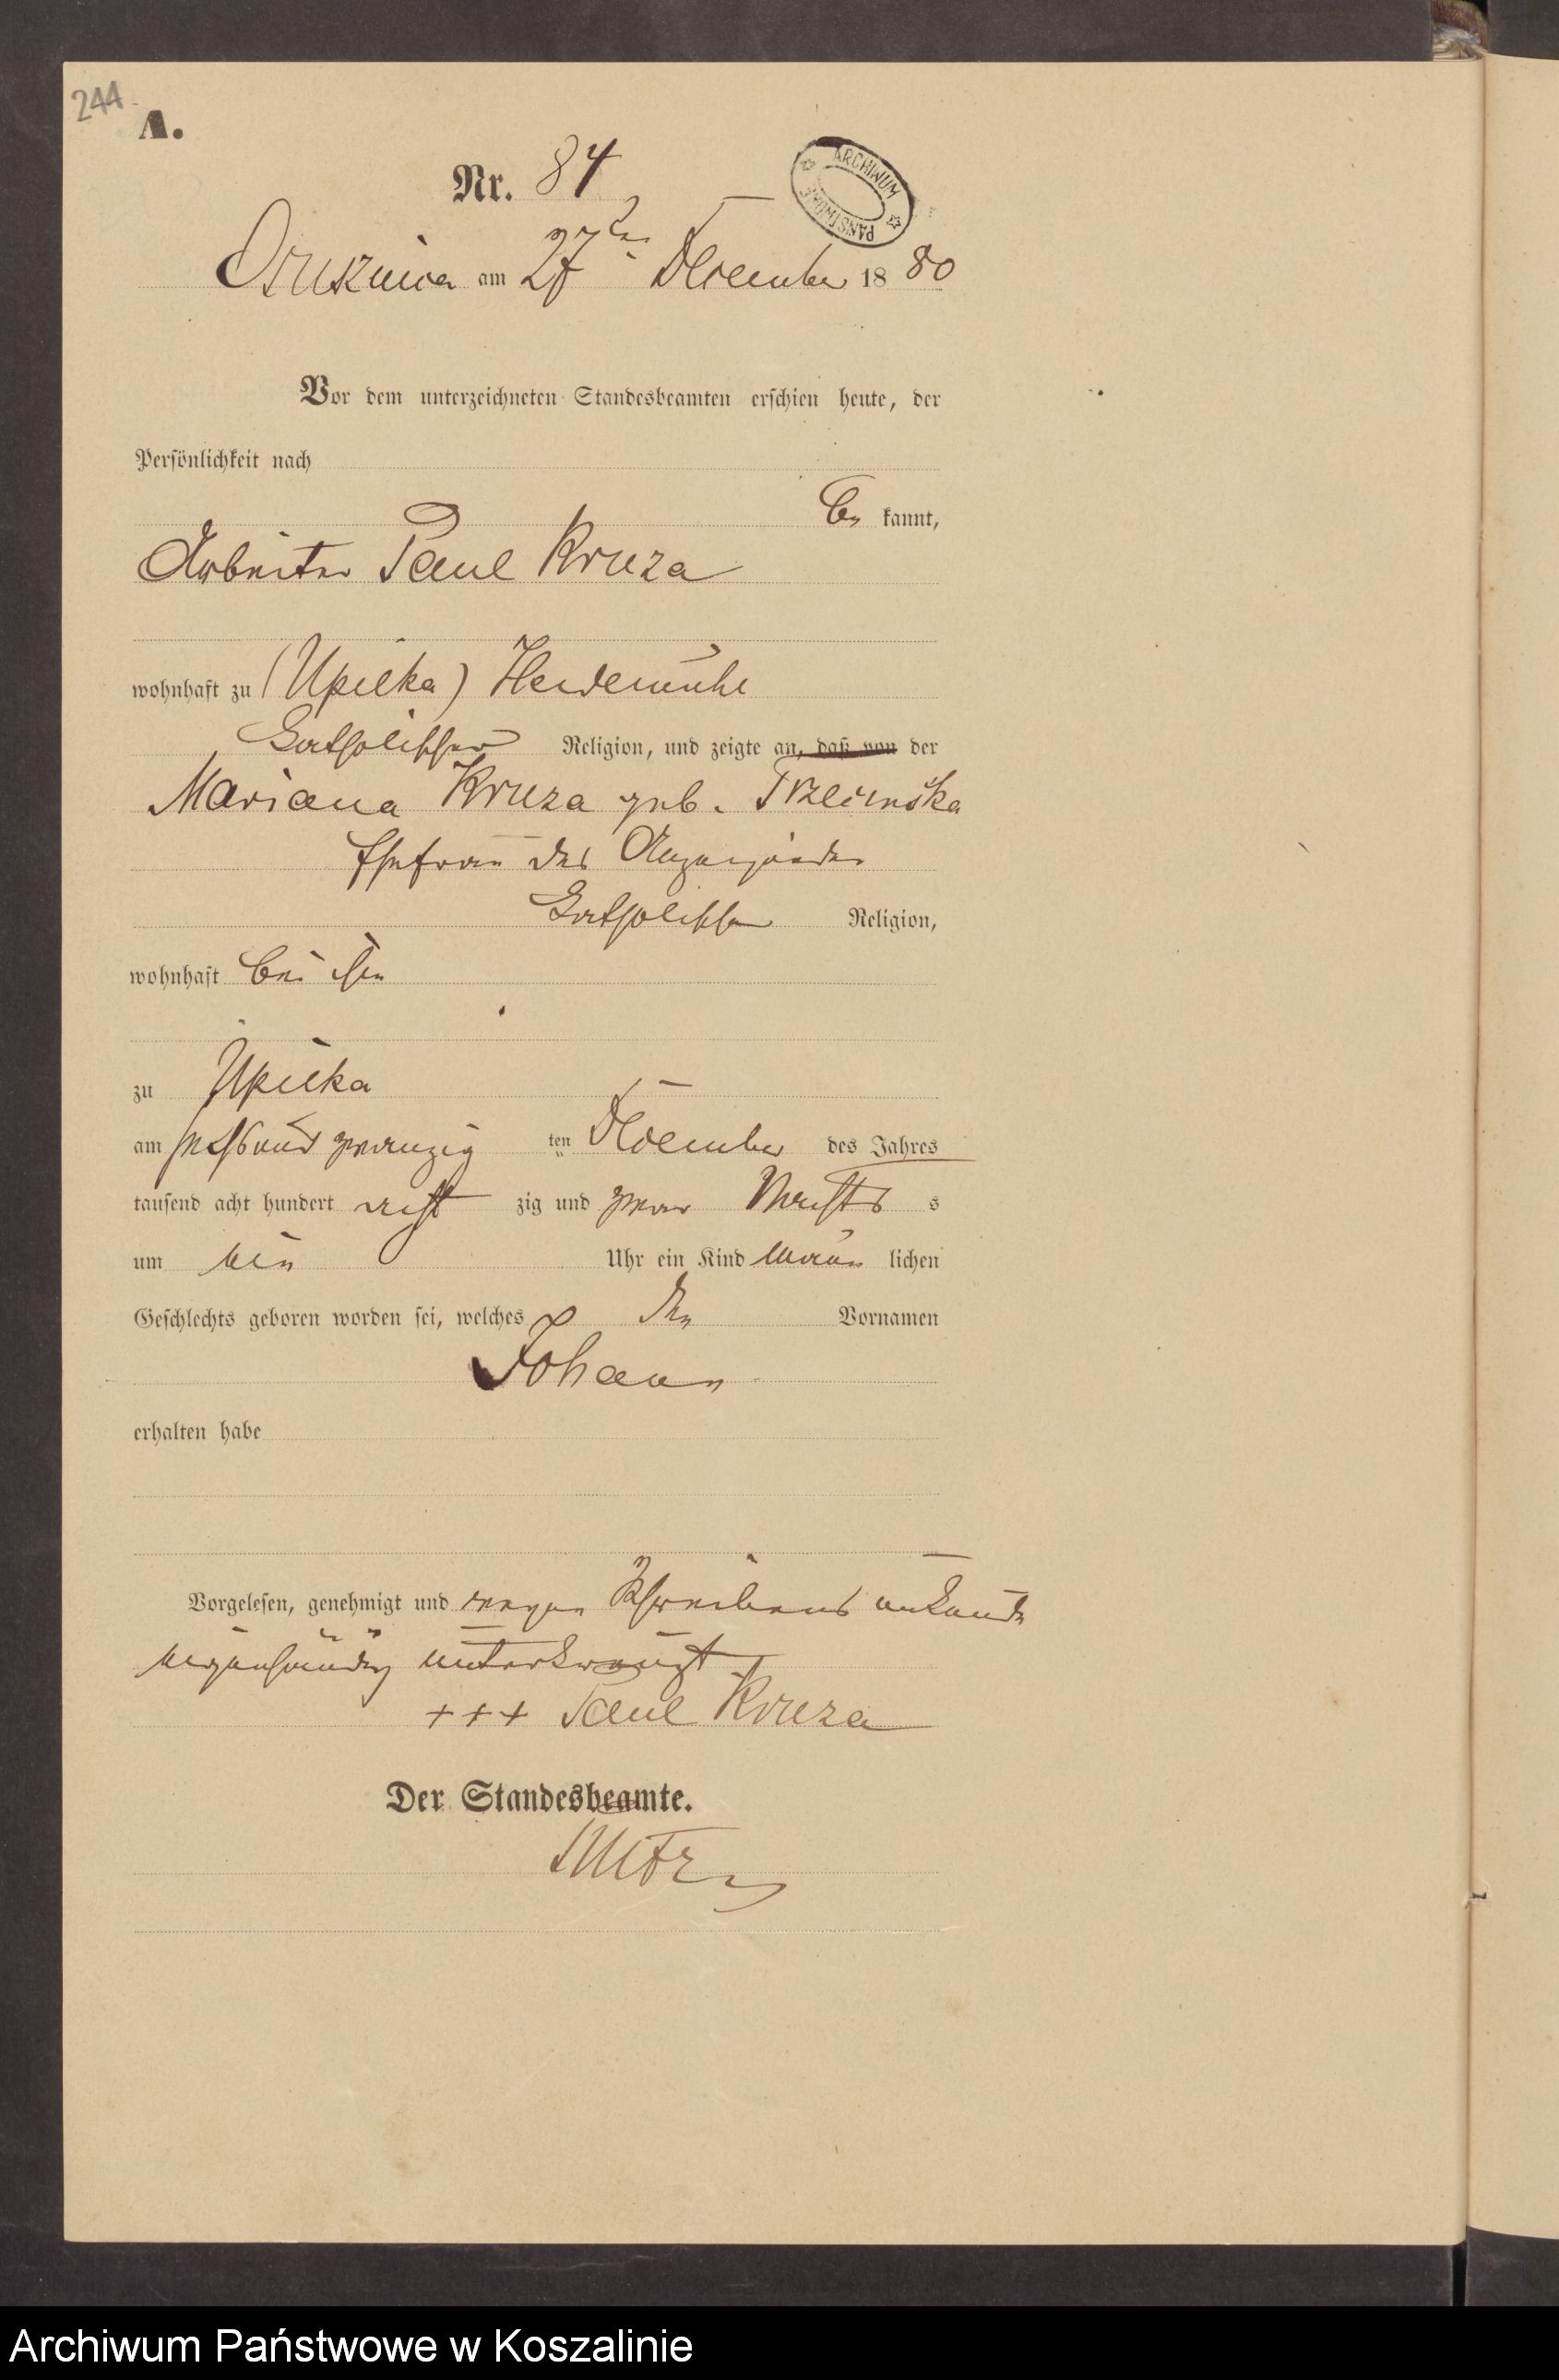 244
A.
Nr. 84
ARCHIWUM PAŃSTWOWE
Osusznica am 27ten December 1880
Vor dem unterzeichneten Standesbeamten erschien heute, der
Persönlichkeit nach
be kannt,
Arbeiter Paul Kruza
wohnhaft zu (Upilka) Heidemühl
katholischer Religion, und zeigte an, daß von der
Mariana Kruza geb. Trzcinska
Ehefrau des Anzeigenden
katholischer Religion,
wohnhaft bei ihm
zu Upilka
am sechsundzwanzig ten December des Jahres
tausend acht hundert acht zig und zwar Nachts s
um ein Uhr ein Kind männ lichen
Geschlechts geboren worden sei, welches den Vornamen
Johann
erhalten habe
Vorgelesen, genehmigt und wegen Schreibens unkunde
eigenhändig unterkreuzt
+++ Paul Kruza
Der Standesbeamte.
Archiwum Państwowe w Koszalinie